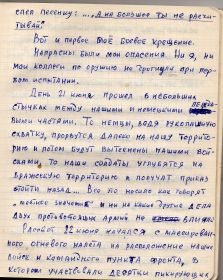 спел песенку: "...А на большее ты не расчи-
тывай".
Вот и первое моё боевое крещение.
Напрасны были мои опасения. Ни я, ни
мои коллеги по оружию не дрогнули при пер-
вом испытании.
День 21 июня прошел в небольших
стычках между нашими и немецкими
частями. То немцы, ведя рукопашную
схватку, прорвутся далеко на нашу террито-
рию и потом будут вытеснены нашими вой-
сками, то наши солдаты углубятся на
вражескую территорию и получат приказ
отойти назад... Всё то носило как говорят
"местное значение" и ни на какие другие дела
двух противостоящих армий не влияло
Рассвет 22 июня начался с массированн
ного огневого налёта на расположение наших
войск и командного пункта фронта, в
котором участвовали десятки пикирующих